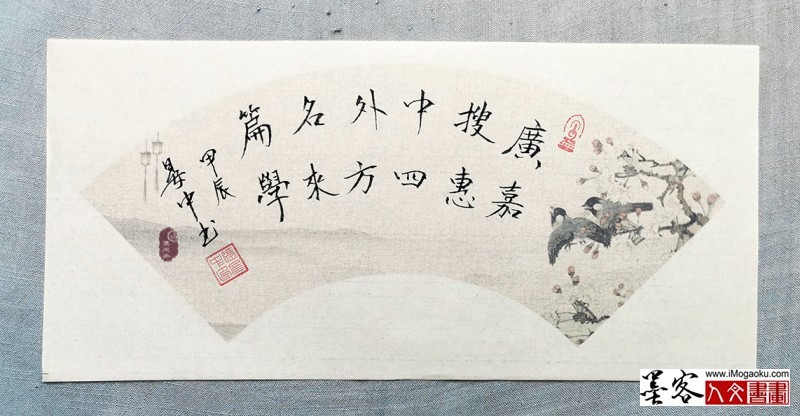 廣搜中外名篇
嘉惠四方來學
甲辰
中书
墨客
www.iMogaoku.com
人文書畫